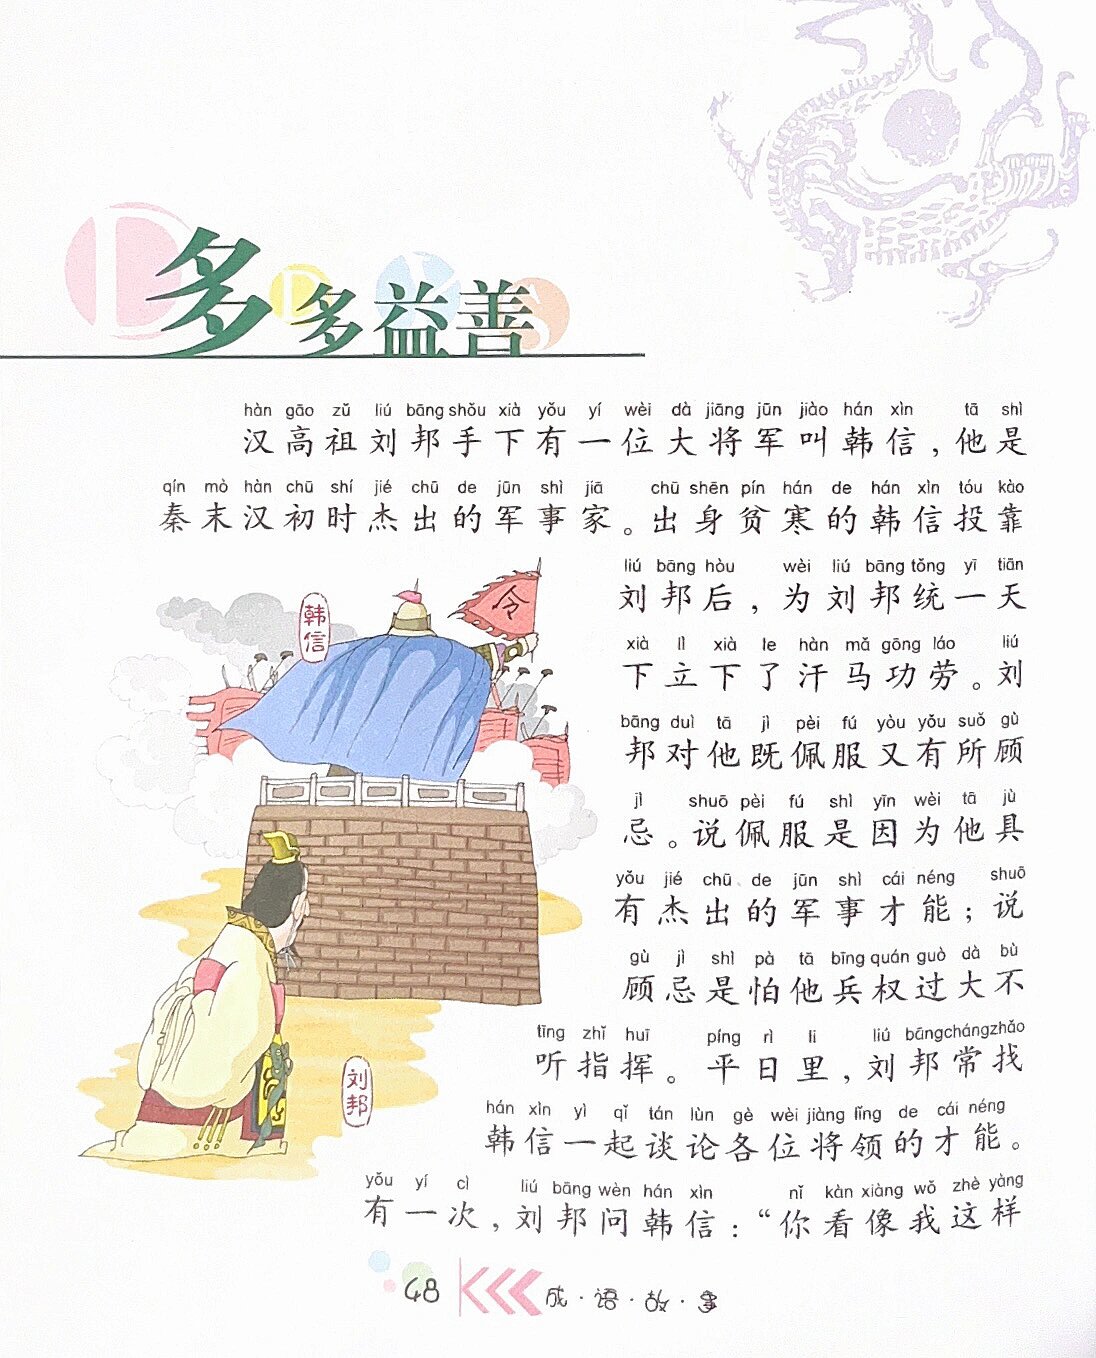 多多益善
hàn gāo zǔ liú bāng shǒu xià yǒu yí wèi dà jiāng jūn jiào hán xìn tā shì
汉高祖刘邦手下有一位大将军叫韩信，他是
qín mò hàn chū shí jié chū de jūn shì jiā chū shēn pín hán de hán xìn tóu kào
秦末汉初时杰出的军事家。出身贫寒的韩信投靠
liú bāng hòu wèi liú bāng tǒng yī tiān
刘邦后，为刘邦统一天
xià lì xià le hàn mǎ gōng láo liú
下立下了汗马功劳。刘
bāng duì tā jì pèi fú yòu yǒu suǒ gù
邦对他既佩服又有所顾
jì shuō pèi fú shì yīn wèi tā jù
忌。说佩服是因为他具
yǒu jié chū de jūn shì cái néng shuō
有杰出的军事才能；说
gù jì shì pà tā bīng quán guò dà bù
顾忌是怕他兵权过大不
tīng zhǐ huī píng rì li liú bāng cháng zhǎo
听指挥。平日里，刘邦常找
hán xìn yì qǐ tán lùn gè wèi jiàng lǐng de cái néng
韩信一起谈论各位将领的才能。
yǒu yí cì liú bāng wèn hán xìn nǐ kàn xiàng wǒ zhè yàng
有一次，刘邦问韩信：“你看像我这样
令
韩信
刘邦
48 成·语·故·事